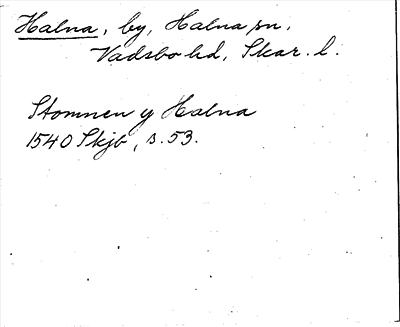 Halna, by, Halna sn,
Vadsbo hd, Skar. l.
Stomnen y Halna
1540 Skjb, s. 53.